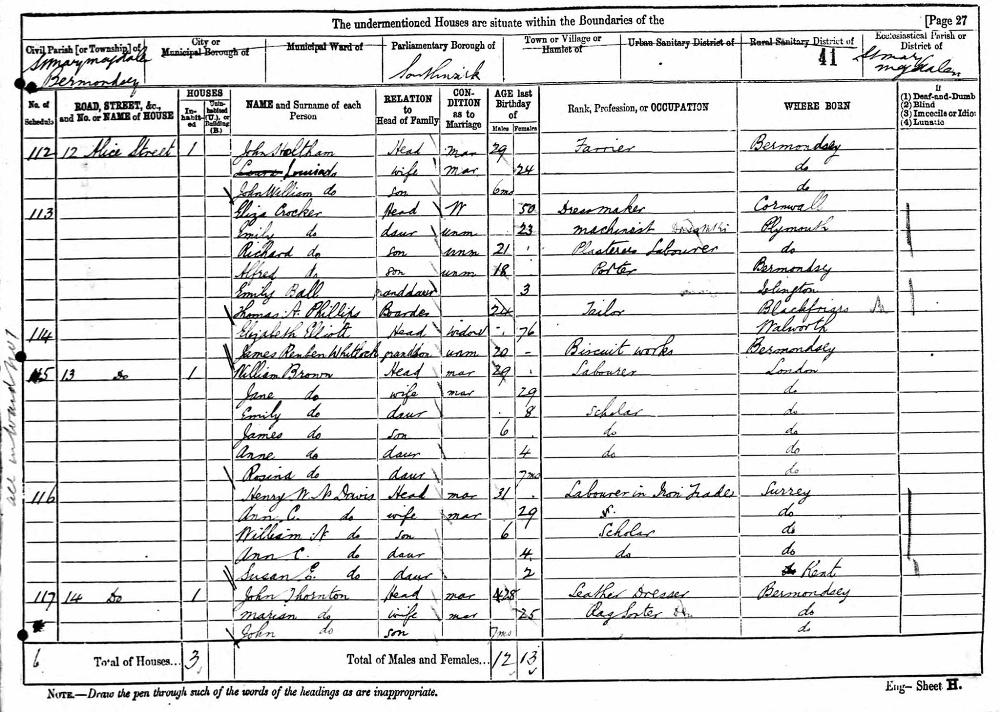 The undermentioned Houses are situate within the Boundaries of the [Page 27
Civil Parish [or Township] of City or Municipal Borough of Municipal Ward of Parliamentary Borough of Town or Village or Hamlet of Urban Sanitary District of Rural Sanitary District of Ecclesiastical Parish or District of
St Mary Magdalen Bermondsey Southwark 41 St Mary Magdalen
No. of Schedule ROAD, STREET, &c., and No. or NAME of HOUSE HOUSES Inhabited Uninhabited (U.), or Building (B.) NAME and Surname of each Person RELATION to Head of Family CONDITION as to Marriage AGE last Birthday of Males Females Rank, Profession, or OCCUPATION WHERE BORN If (1) Deaf-and-Dumb (2) Blind (3) Imbecile or Idiot (4) Lunatic
112 12 Alice Street 1 John Holtham Head mar 29 Farrier Bermondsey
Louisa do wife mar 24 do
John William do son 6mo do
113 Eliza Crocker Head W 50 Dressmaker Cornwall
Emily do daur unm 23 machinist Plymouth
Richard do son unm 21 Plasterers Labourer do
Alfred do son unm 18 Porter Bermondsey
Emily Ball granddaur 3 Islington
Thomas A. Phillips Boarder 24 Tailor Blackfriars
114 Elizabeth Elliott Head Widow 76 Walworth
James Reuben Whitlock grandson unm 20 Biscuit works Bermondsey
115 13 Do 1 William Brown Head mar 29 Labourer London
Jane do wife mar 29 do
Emily do daur 8 Scholar do
James do son 6 do do
Anne do daur 4 do do
Rosina do daur 7mo do
116 Henry W. N. Davis Head mar 31 Labourer in Iron Trade Surrey
Ann C. do wife mar 29 do
William N do son 6 Scholar do
Ann C. do daur 4 do do
Susan E. do daur 2 Kent
117 14 Do 1 John Thornton Head mar 28 Leather Dresser Bermondsey
Marian do wife mar 25 Rag Sorter do
John do son 7mo do
6 Total of Houses... 3 Total of Males and Females... 12 13
NOTE.—Draw the pen through such of the words of the headings as are inappropriate. Eng— Sheet H.